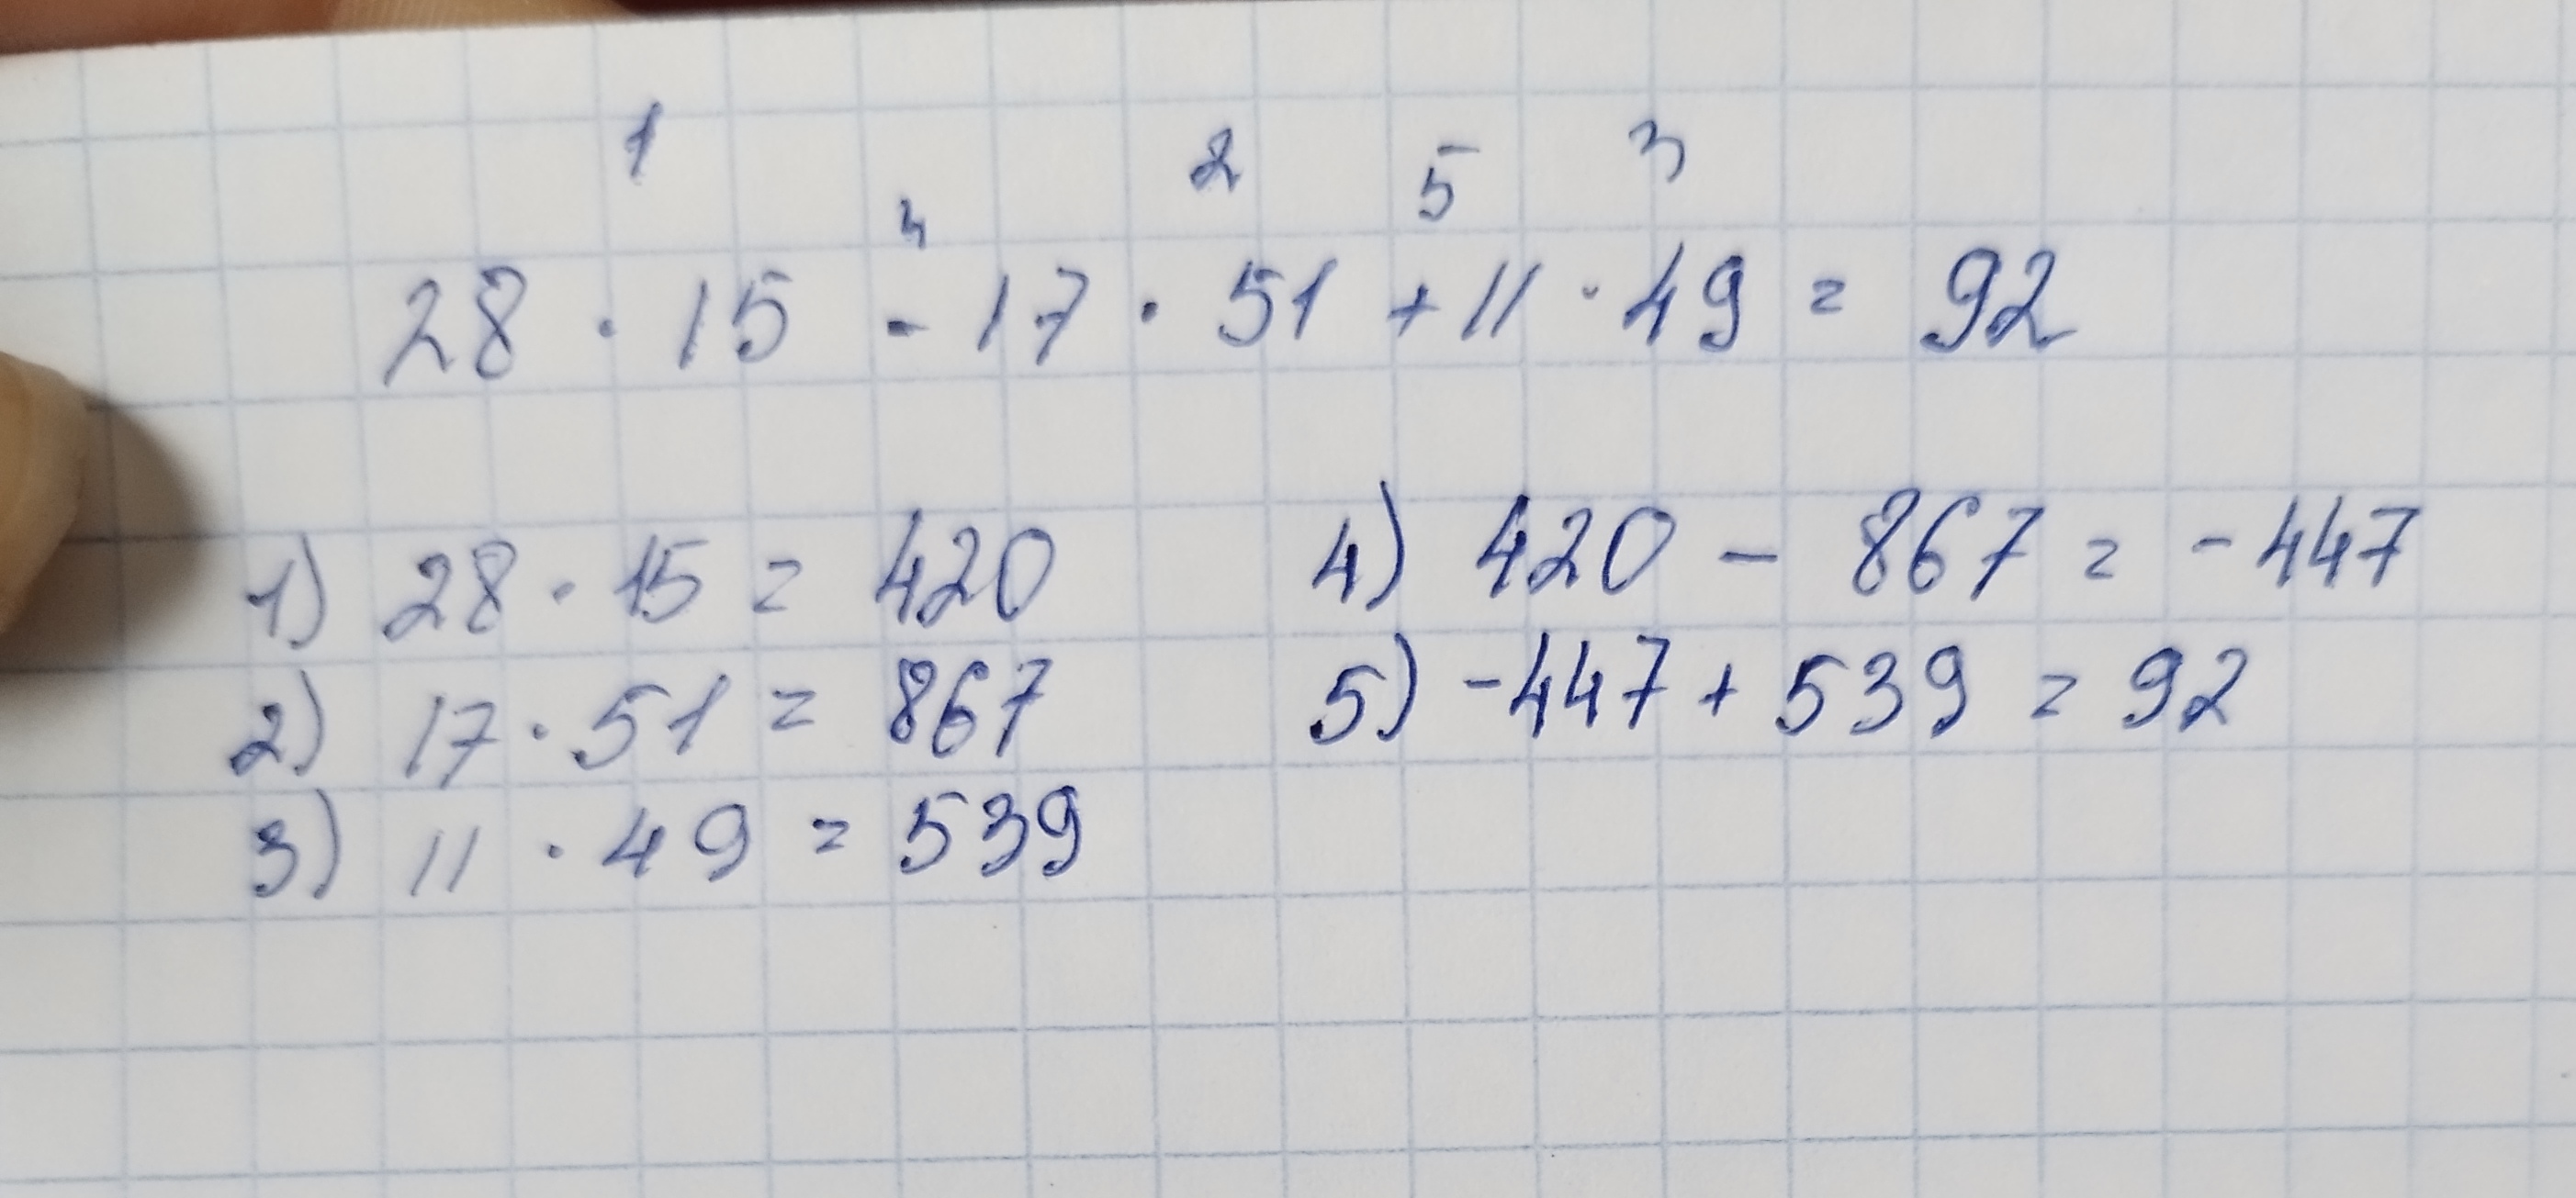 1 4 2 5 3
28 · 15 - 17 · 51 + 11 · 49 = 92
1) 28 · 15 = 420
2) 17 · 51 = 867
3) 11 · 49 = 539
4) 420 - 867 = -447
5) -447 + 539 = 92